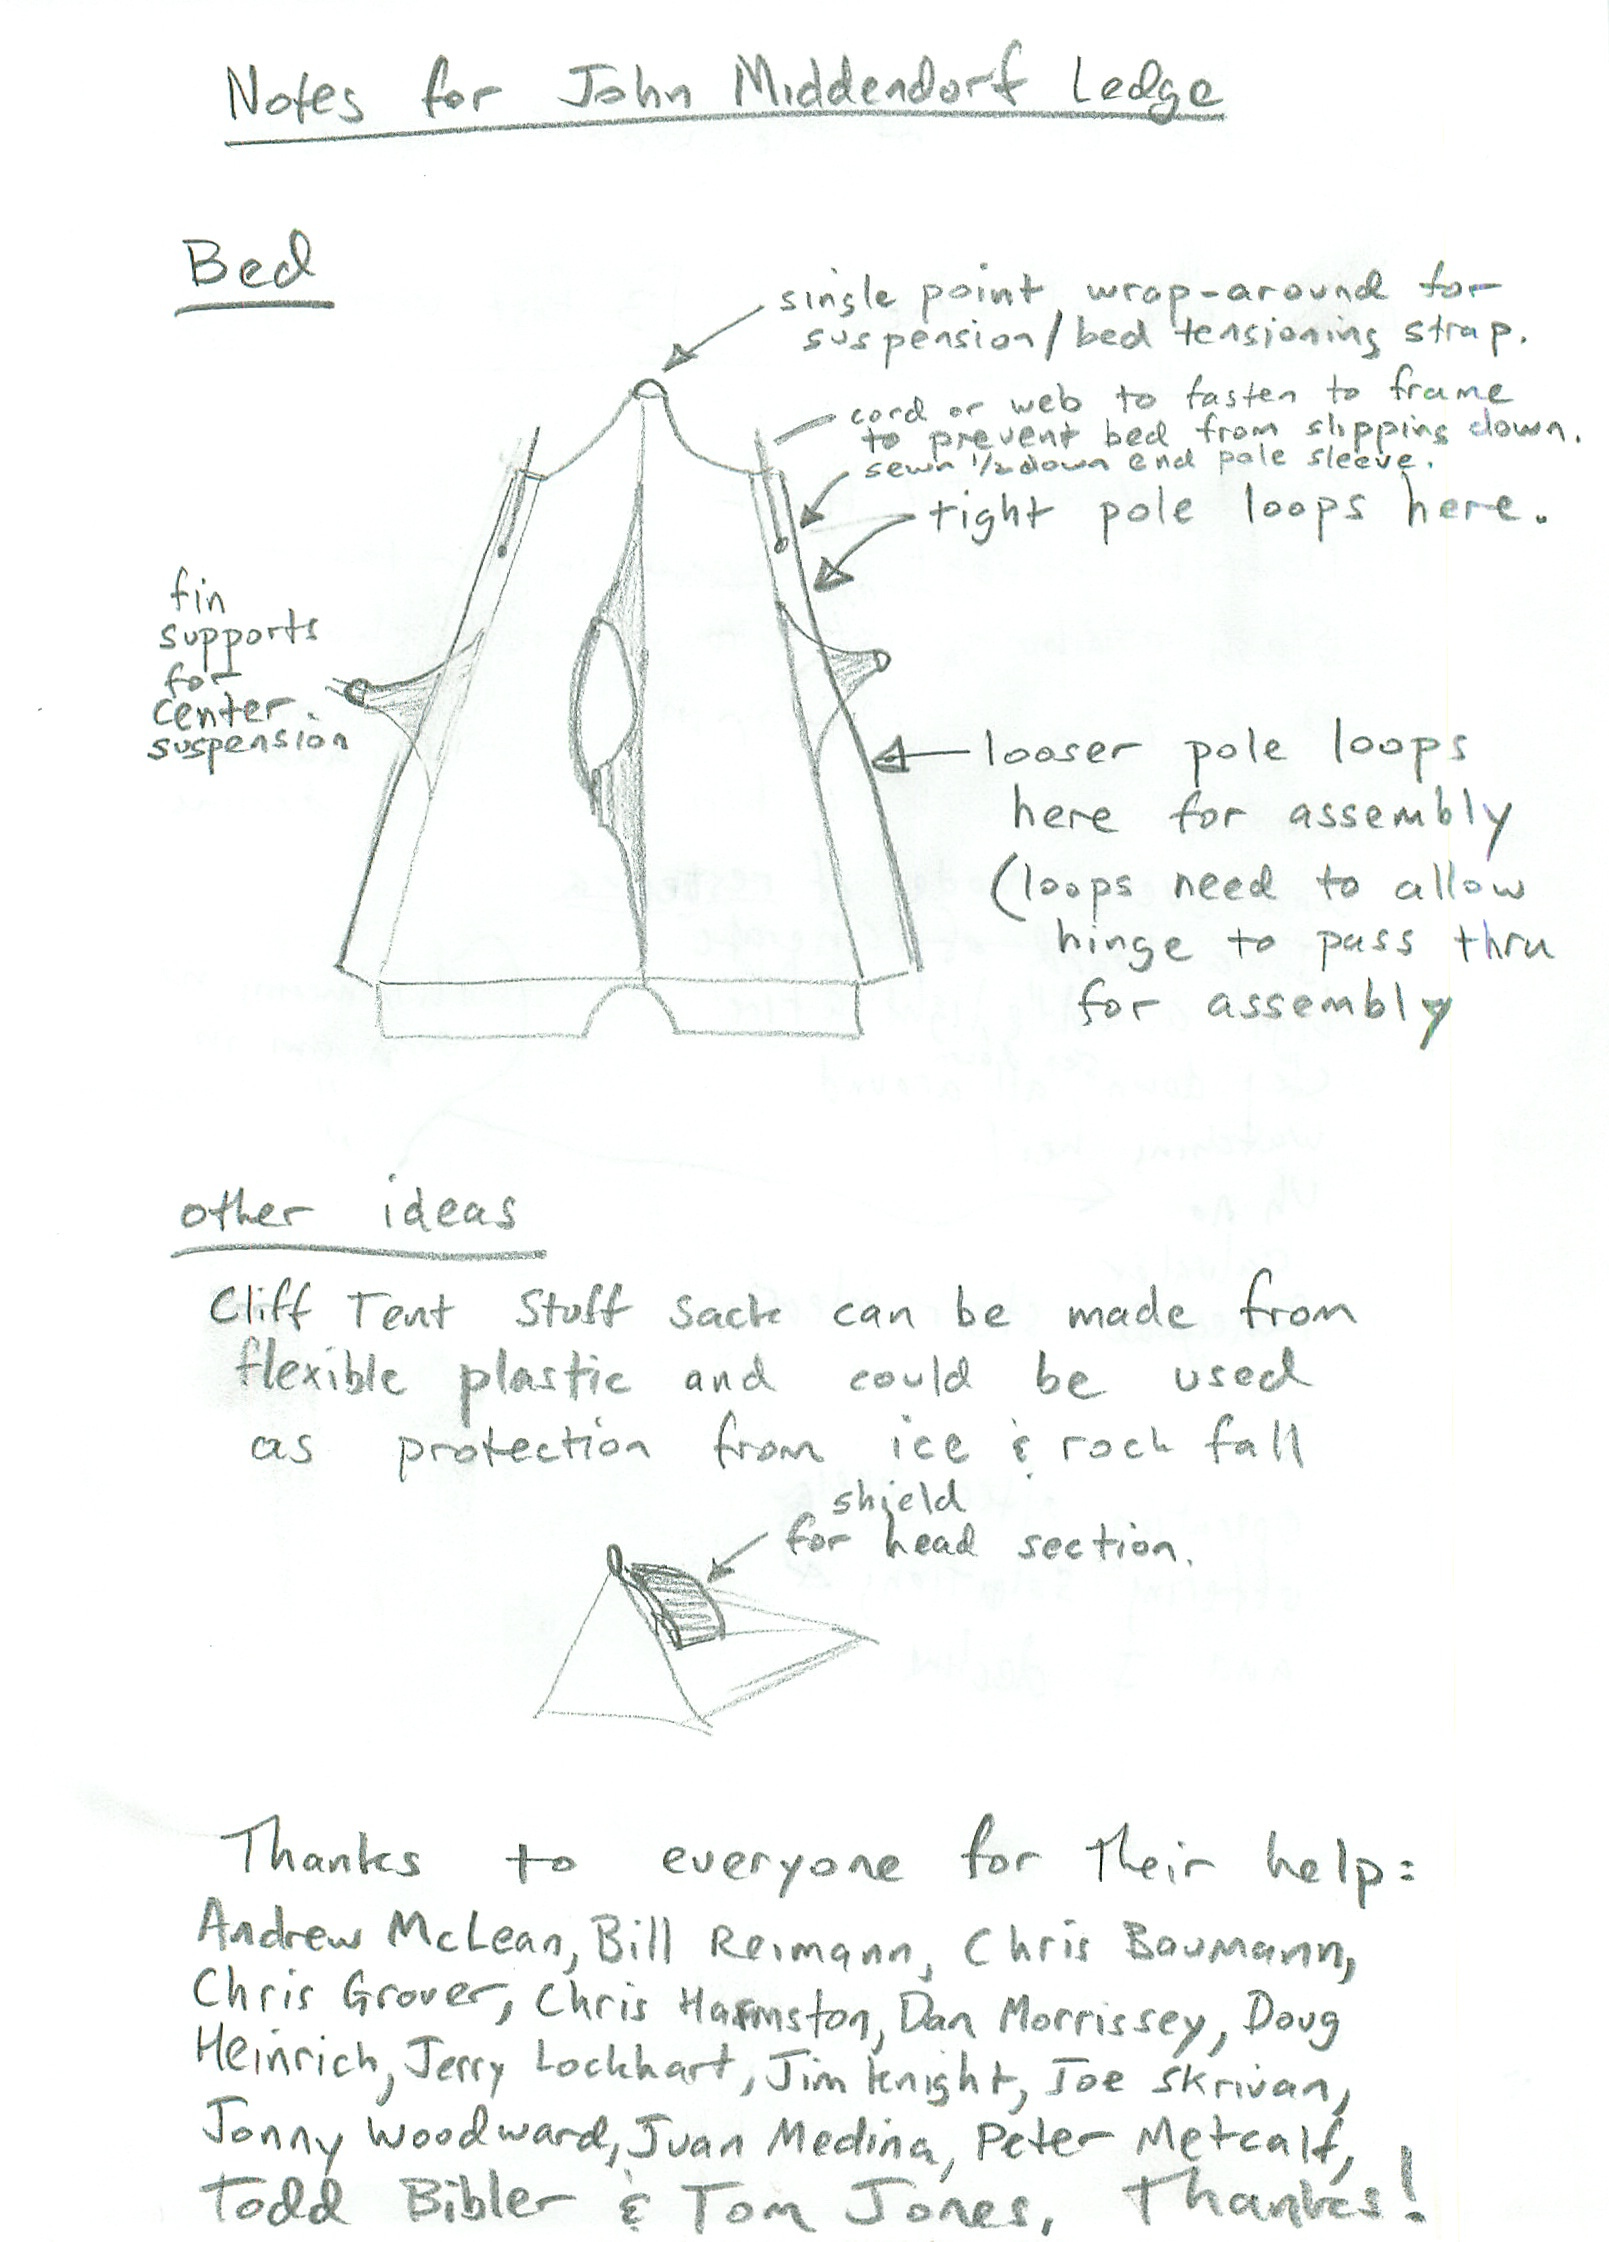 Notes for John Middendorf Ledge
Bed
single point wrap-around for
suspension/bed tensioning strap.
cord or web to fasten to frame
to prevent bed from slipping down.
sewn 1/2 down end pole sleeve.
tight pole loops here.
fin
supports
for
center
suspension
looser pole loops
here for assembly
(loops need to allow
hinge to pass thru
for assembly
other ideas
Cliff Tent Stuff Sack can be made from
flexible plastic and could be used
as protection from ice & rock fall
shield
for head section.
Thanks to everyone for their help:
Andrew McLean, Bill Reimann, Chris Baumann,
Chris Grover, Chris Harmston, Dan Morrissey, Doug
Heinrich, Jerry Lockhart, Jim Knight, Joe Skrivan,
Jonny Woodward, Juan Medina, Peter Metcalf,
Todd Bibler & Tom Jones. Thanks!